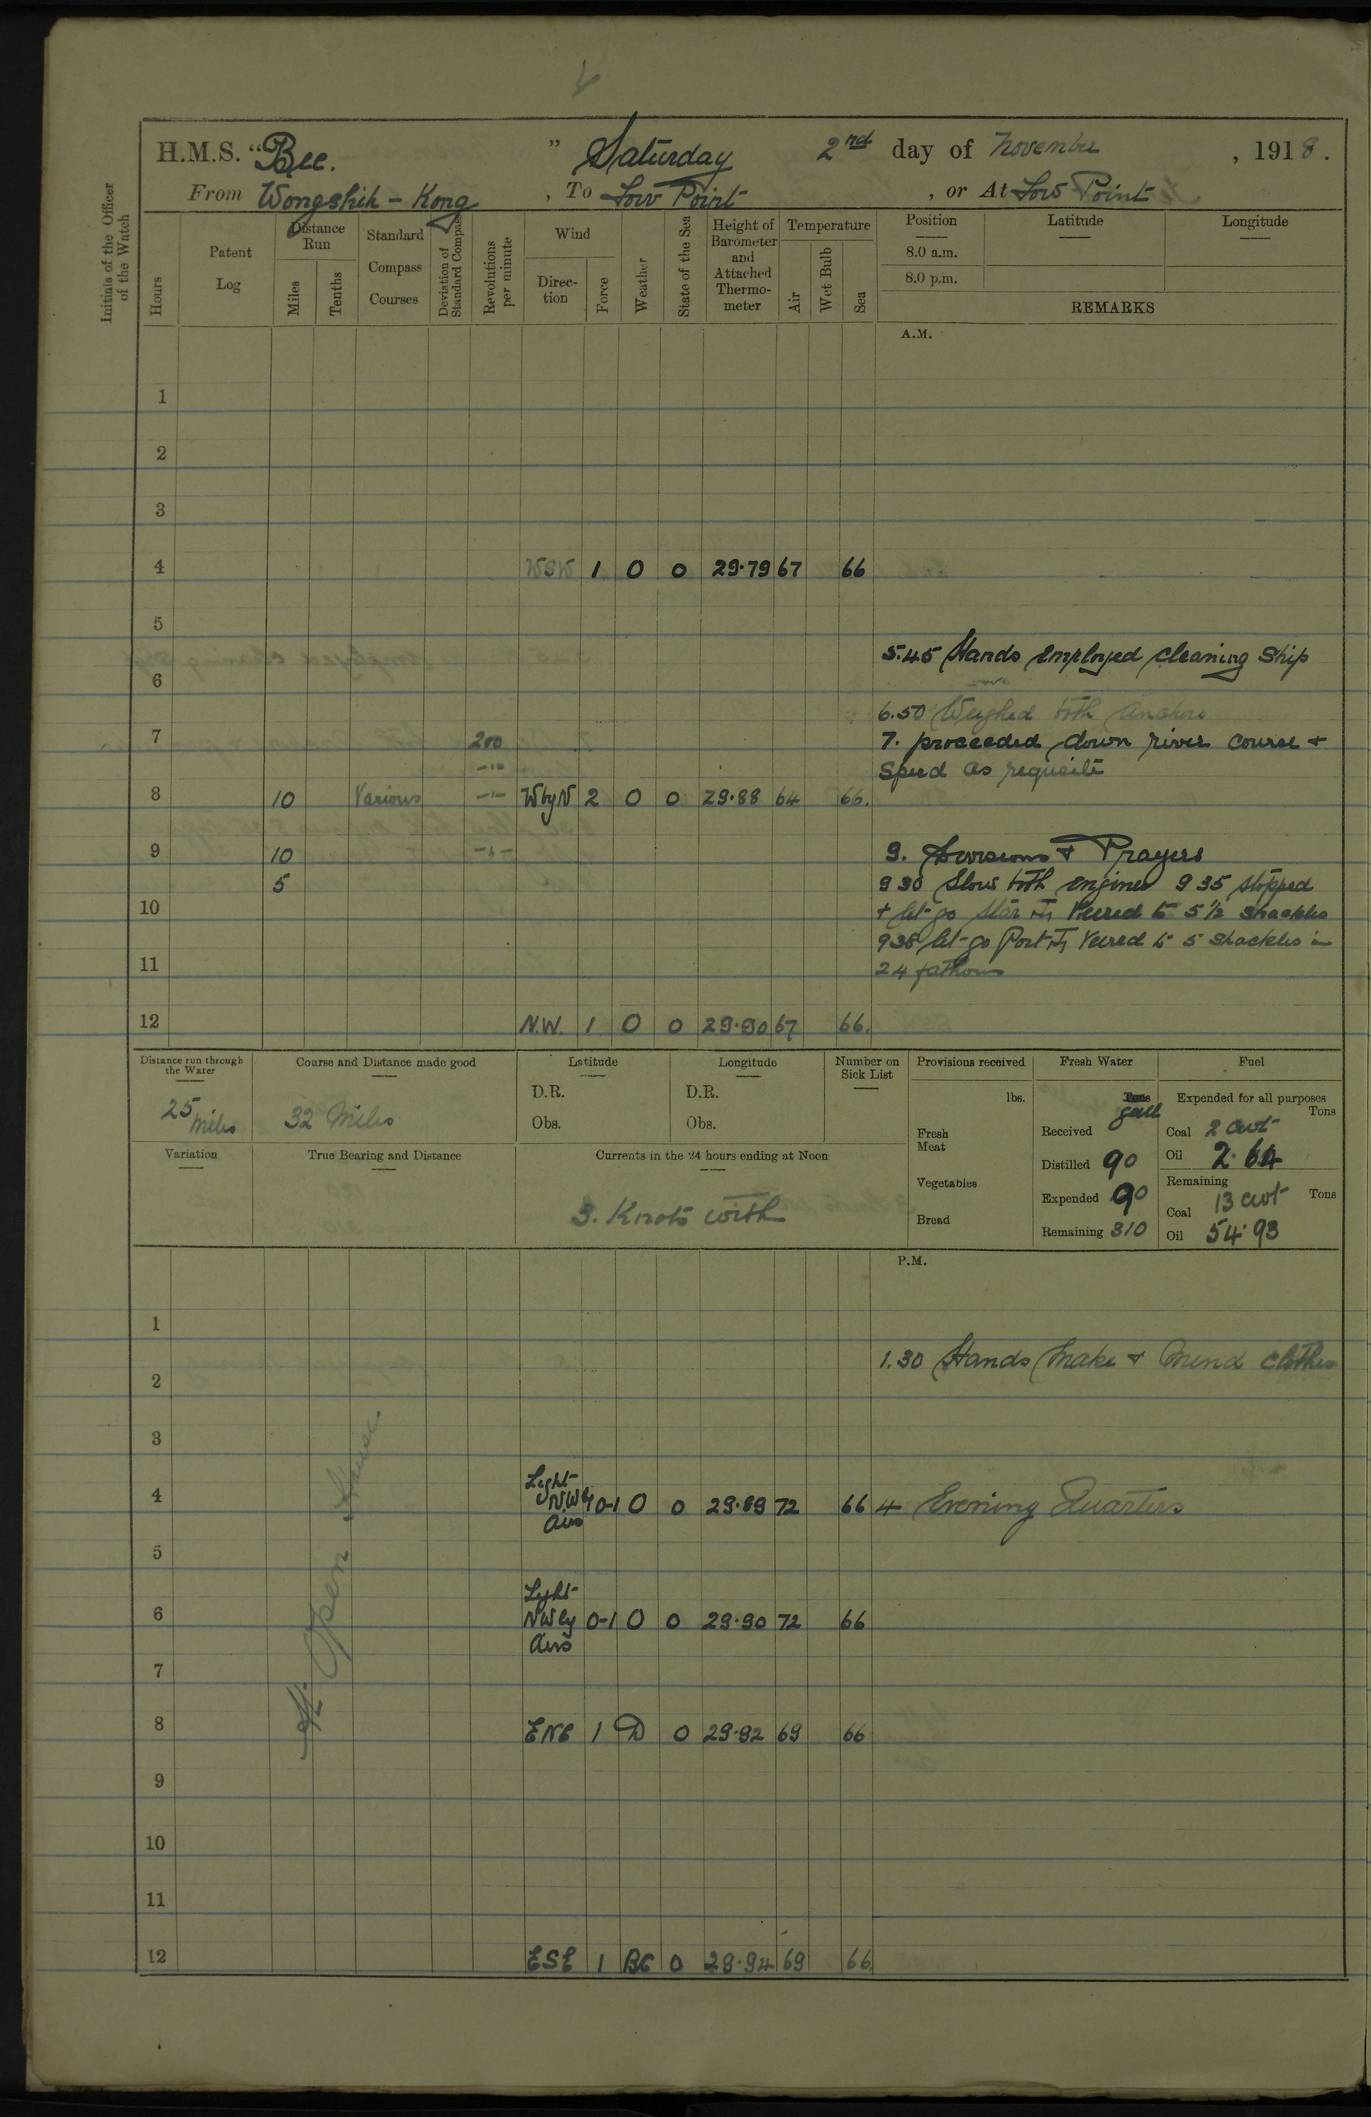 H.M.S. "Bee. " Saturday 2nd day of November , 1918.
From Wongshih-Kong , To Low Point , or At Low Point
Initials of the Officer of the Watch
Hours
Patent Log
Distance Run
Miles
Tenths
Standard Compass Courses
Deviation of Standard Compass
Revolutions per minute
Wind
Direction
Force
Weather
State of the Sea
Height of Barometer and Attached Thermometer
Temperature
Air
Wet Bulb
Sea
Position
8.0 a.m.
8.0 p.m.
Latitude
Longitude
REMARKS
A.M.
1
2
3
4 WSW 1 O 0 29.79 67 66
5
5.45 Hands employed cleaning Ship
6
6.50 Weighed both anchors
7 200 7. proceeded down river course +
-"- Speed as requisite
8 10 Various -"- WbyN 2 O 0 29.88 64 66.
9 10 -"- 9. Divisions + Prayers
5 9 30 Slow both engines 9 35 stopped
10 + let-go Star ⚓ Veered to 5½ shackles
9 38 let-go Port ⚓ Veered to 5 shackles in
11 24 fathoms
12 N.W. 1 O 0 29.90 67 66.
Distance run through the Water
25 miles
Course and Distance made good
32 Miles
Latitude
D.R.
Obs.
Longitude
D.R.
Obs.
Number on Sick List
Provisions received
lbs.
Fresh Meat
Vegetables
Bread
Fresh Water
Tons
gall
Received
Distilled 90
Expended 90
Remaining 310
Fuel
Expended for all purposes
Tons
Coal 2 cwt
Oil 2.64
Remaining
Tons
Coal 13 cwt
Oil 54.93
Variation
True Bearing and Distance
Currents in the 24 hours ending at Noon
3. Knots with
P.M.
1
1.30 Hands make + mend clothes
2
3
4 Light NWly airs 0-1 O 0 29.89 72 66 4 Evening Quarters
5
6 Light NWly airs 0-1 O 0 29.90 72 66
7
8 ENE 1 D 0 29.92 69 66
9
10
11
12 ESE 1 BC 0 29.94 69 66
At Open